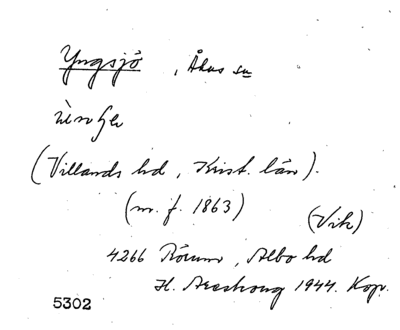 Yngsjö, Åhus sn
(Villands hd, Krist. län).
(m. f. 1863)
(Vik)
4266 Rörum, Albo hd
H. Areskoug 1944. Kop.
5302